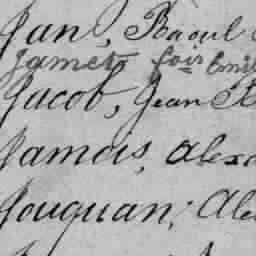 Jan, Raoul
Jamets fois Emil
Jacob, Jean B
Jamois, Alexa
Jouquan, Ale